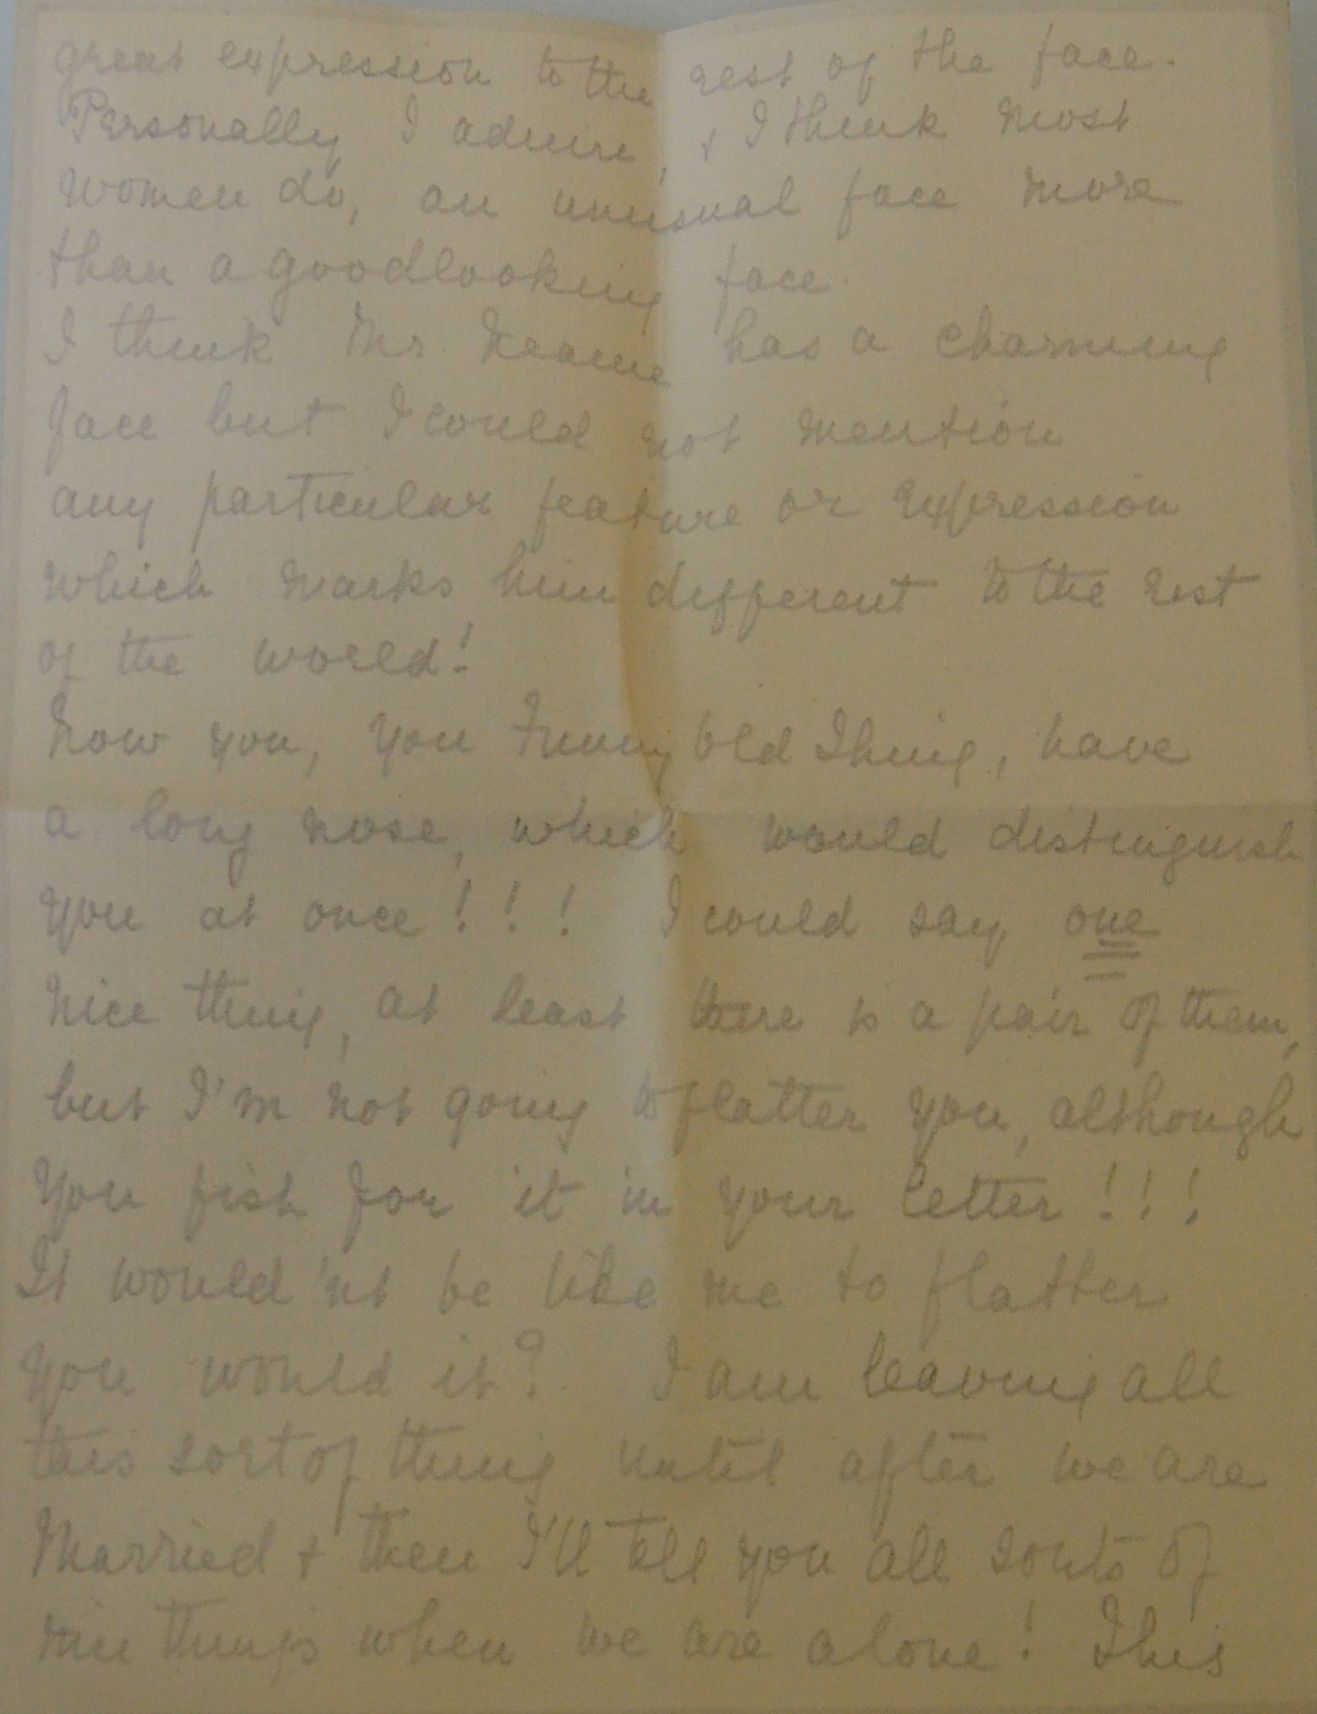 great expression to the rest of the face.
Personally I admire, + I think most
women do, an unusual face more
than a goodlooking face.
I think Mr has a charming
face but I could not mention
any particular feature or expression
which marks him different to the rest
of the world!
Now you, you Funny Old Thing, have
a long nose, which would distinguish
you at once!!! I could say one
nice thing, at least there is a pair of them,
but I'm not going to flatter you, although
you fish for it in your letter!!!
It would'nt be like me to flatter
you would it? I am leaving all
this sort of thing until after we are
Married + then I'll tell you all sorts of
nice things when we are alone! This